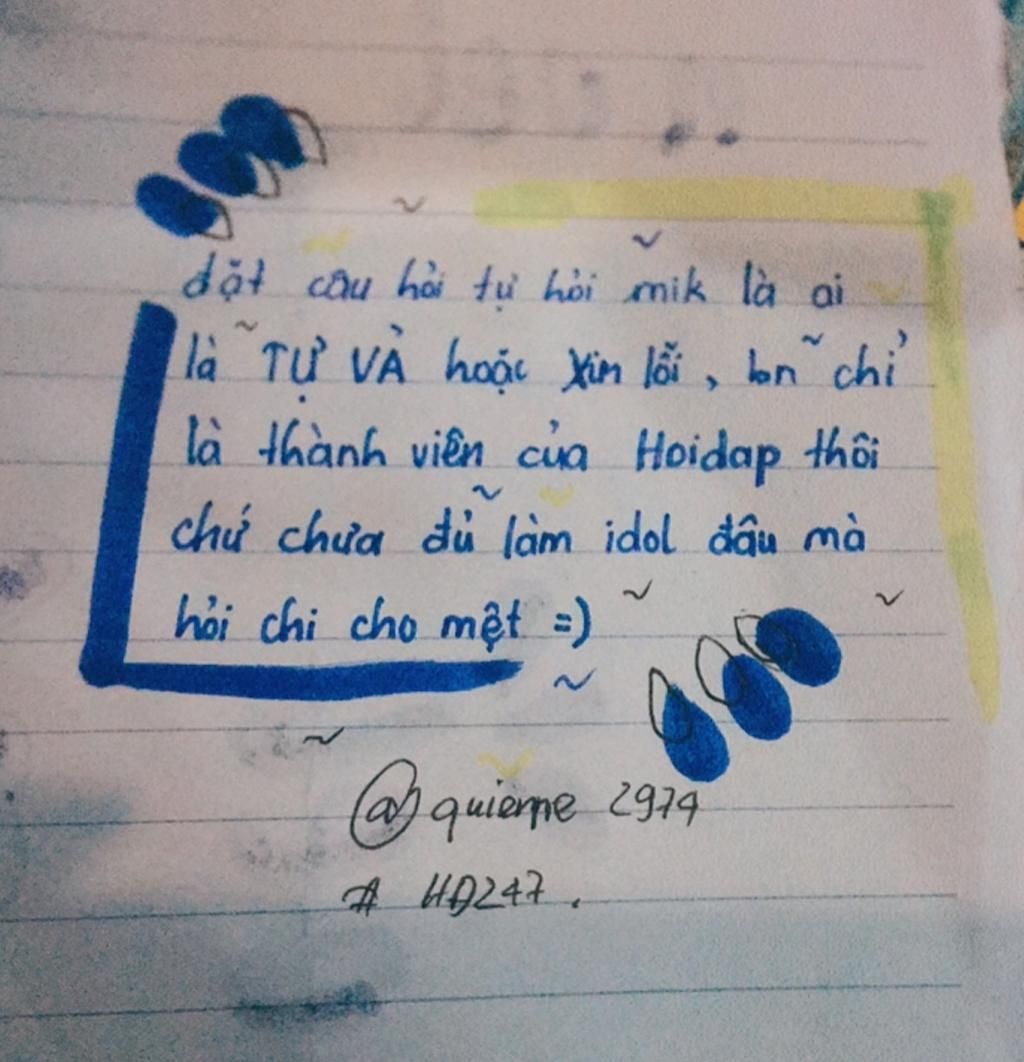 đặt câu hỏi tự hỏi mik là ai
là TỰ VẢ hoặc xin lỗi, bn chỉ
là thành viên của Hoidap thôi
chứ chưa đủ làm idol đâu mà
hỏi chi cho mệt =)
@quieme 2974
# HD247.